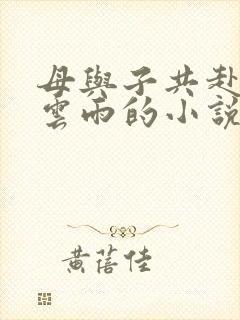 母與子共赴
雲雨的小說
黃蓓佳